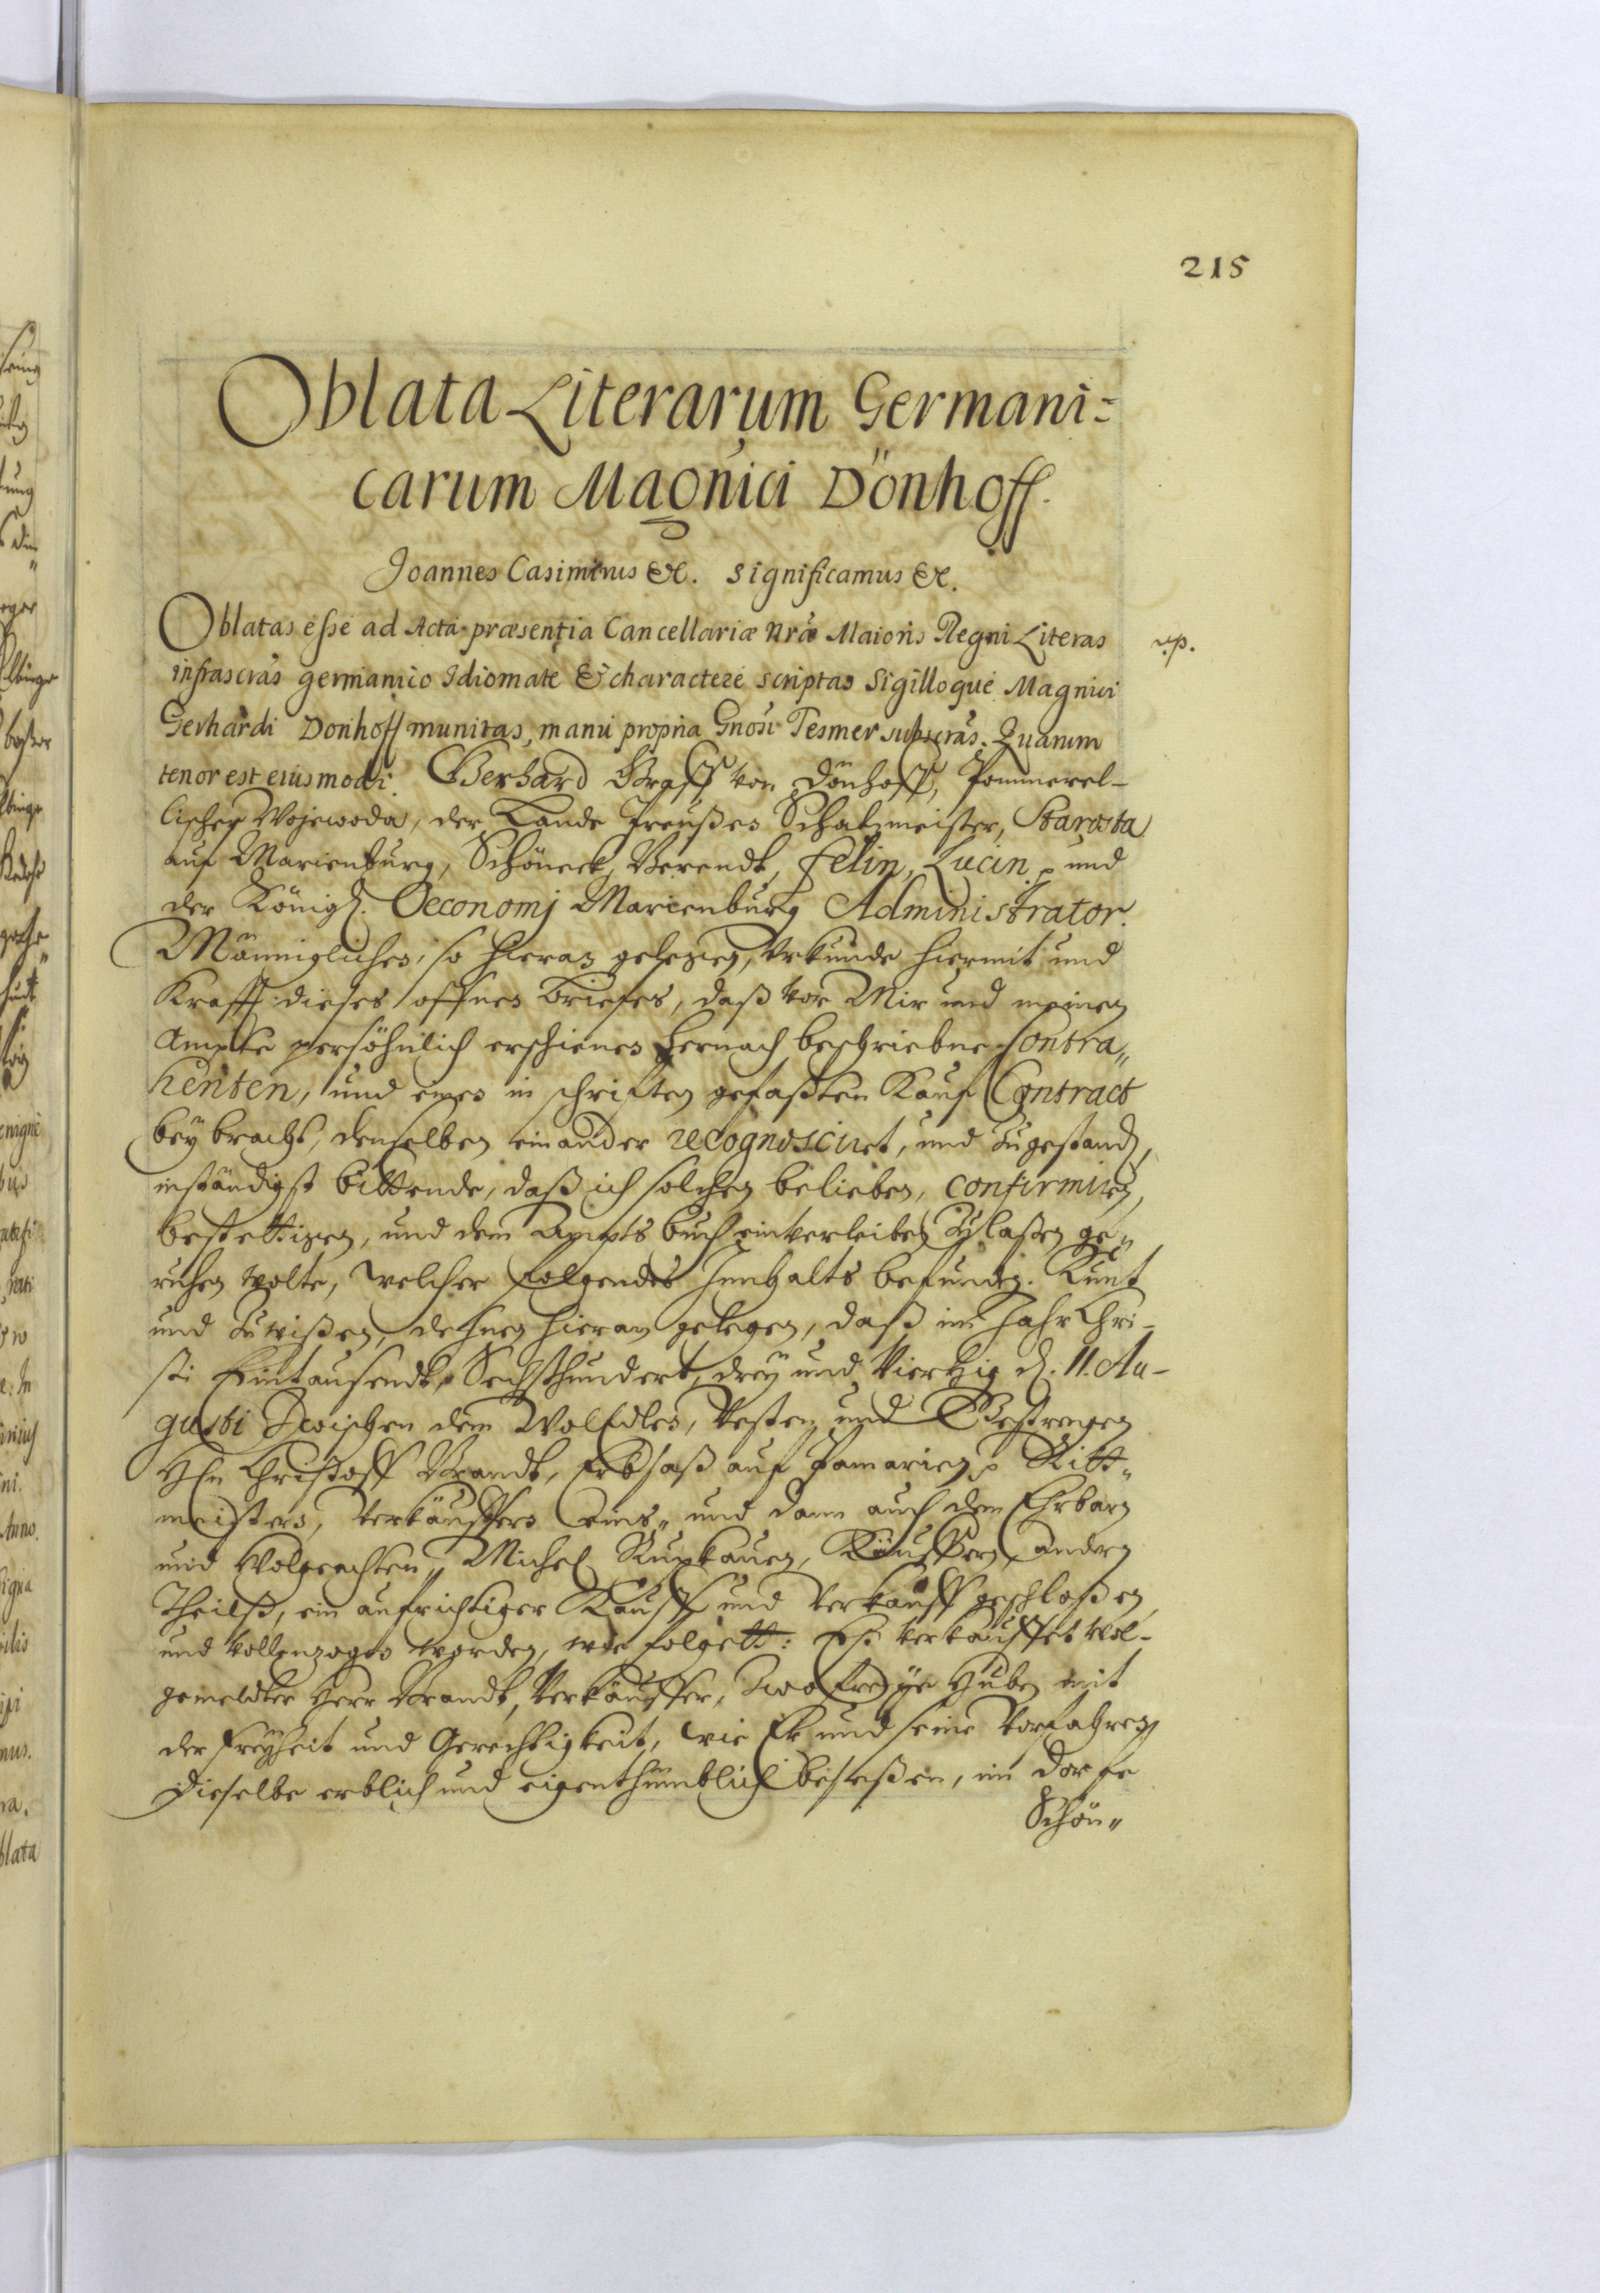 215
Oblata Literarum Germani-
carum Magnici Dönhoff.
Joannes Casimirus &c. Significamus &c.
Oblatas esse ad Acta præsentia Cancellariæ nræ Maioris Regni Literas
rp.
infrascras germanico Idiomate & charactere scriptas Sigilloque Magnici
Gerhardi Donhoff munitas, manu propria Gnosi Tesmer subscras. Quarum
tenor est eiusmodi. Gerhard Graff von Dönhoff, Pommerel-
lischer Wojewoda, der Lande Preußen Schatzmeister, Starosta
auf Marienburg, Schöneck, Berendt, Felin, Lucin p und
der Königl. Oeconomj Marienburg Administrator.
Männiglichen, so hieran gelegen, Urkunde hiermit und
Krafft dieses offnen Briefes, daß vor Mir und meinen
Ampte persöhnlich erschienen hernach beschriebne Contra„
henten, und einen in schrifften gefaßten Kauf Contract
beÿ bracht, denselben einander recognosciret, und zugestand,
inständigst bittende, daß ich solchen belieben, confirmiren,
bestettigen, und dem Ampts buch einverleiben zulaßen ge„
ruhen wolte, welcher folgendes Innhalts befunden. Kunt
und Zuwißen, dehnen hieran gelegen, daß im Jahr Chri-
sti Eintausendt, Sechshundert, dreÿ und Viertzig d. 11. Au-
gusti Zwischen dem WolEdlen, Vesten und Gestrengen
Hn Christoff Brandt, Erbsaß auf Pamarien p Ritt„
meistern, Verkäuffern eines„ und dann auch dem Ehrbarn
und Wolgeachten„ Michel, Käuffern, andern
Theilß, ein aufrichtiger Kauff und Verkauff geschloßen
und vollenzogen worden, wie folgett: Es verkauffet Wol-
gemeldter Herr Brandt, Verkäuffer, Zwo freÿe Huben mit
der freÿheit und Gerechtigkeit, wie Er und seine Vorfahren
dieselbe erblich und eigenthümblich beseßen, im Dorfe
Schön„